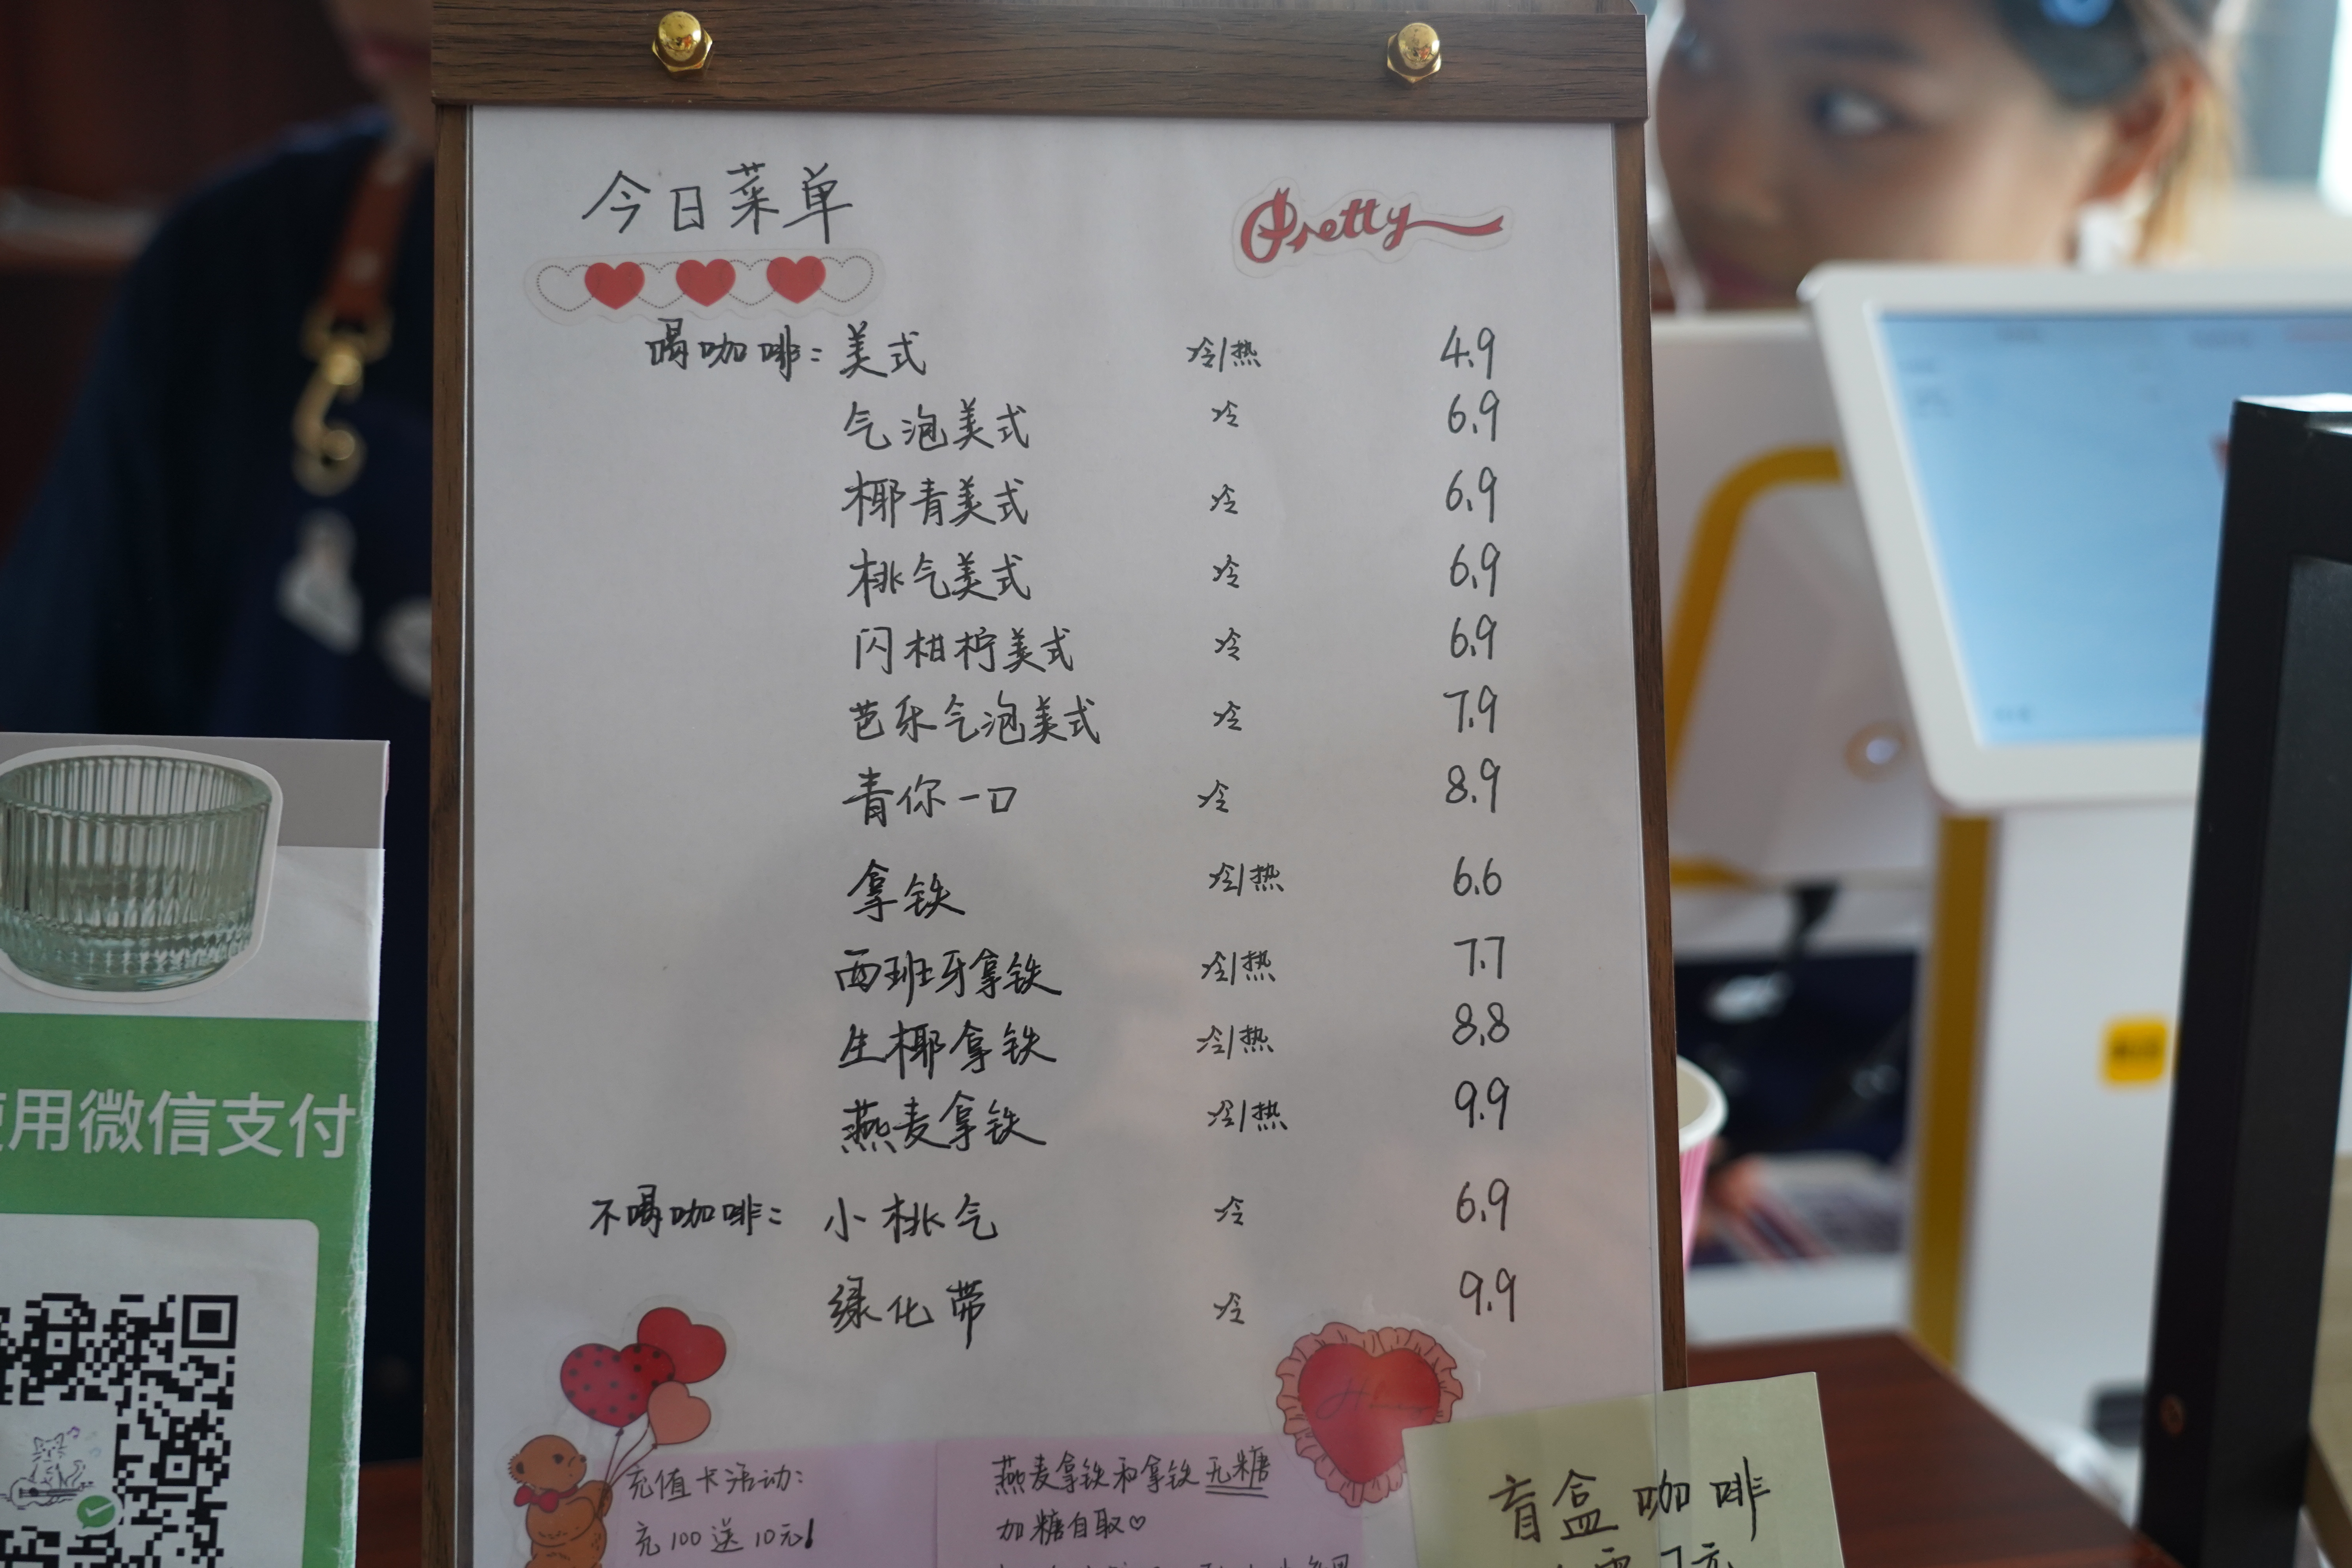 今日菜单
Pretty
喝咖啡: 美式 冷/热 4.9
气泡美式 冷 6.9
椰青美式 冷 6.9
桃气美式 冷 6.9
闪柑柠美式 冷 6.9
芭乐气泡美式 冷 7.9
青你一口 冷 8.9
拿铁 冷/热 6.6
西班牙拿铁 冷/热 7.7
生椰拿铁 冷/热 8.8
燕麦拿铁 冷/热 9.9
不喝咖啡: 小桃气 冷 6.9
绿化带 冷 9.9
充值卡活动:
充100送10元!
燕麦拿铁和拿铁无糖
加糖自取♡
盲盒咖啡
用微信支付